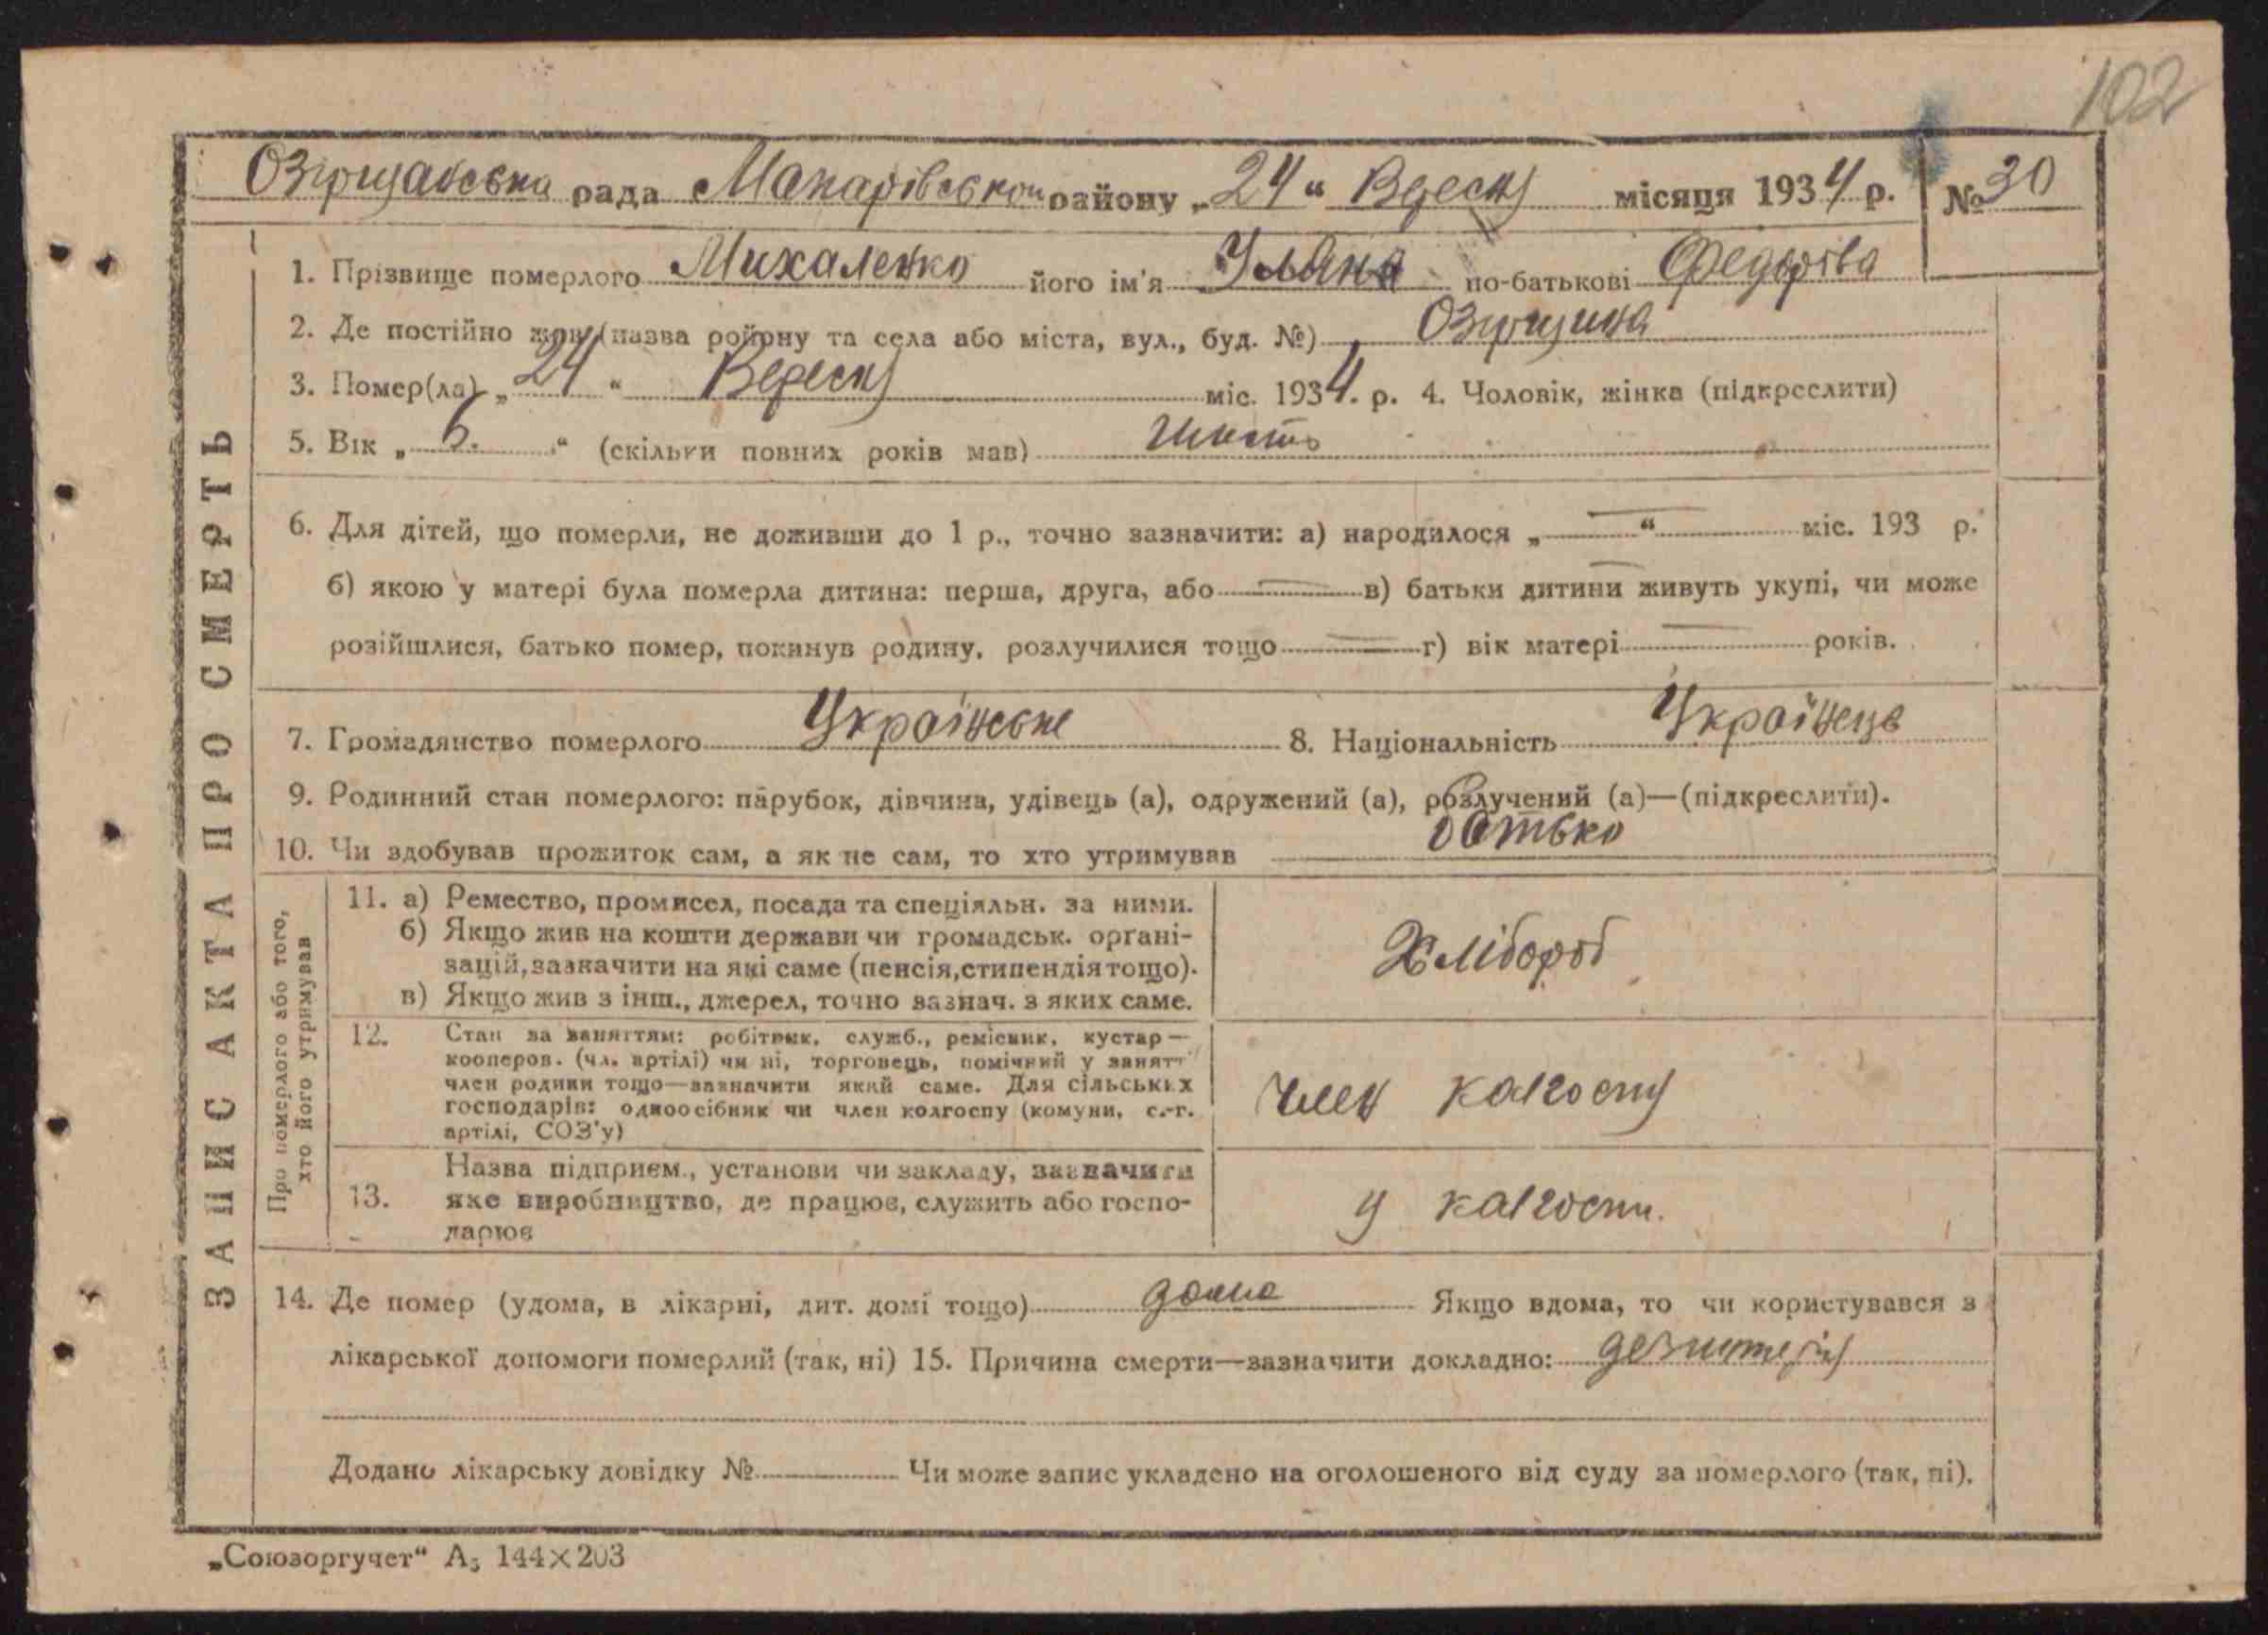 102
Озірщанська рада Макарівського району „24" Вересня місяця 1934 р. № 30
ЗАПИС АКТА ПРО СМЕРТЬ
1. Прізвище померлого Михаленко його ім'я Уляна по-батькові Федорівa
2. Де постійно жив (назва району та села або міста, вул., буд. №) Озірщина
3. Помер(ла) „24" Вересня міс. 1934. р. 4. Чоловік, жінка (підкреслити)
5. Вік „6." (скільки повних років мав) шість
6. Для дітей, що померли, не доживши до 1 р., точно зазначити: а) народилося „—" міс. 193 р.
б) якою у матері була померла дитина: перша, друга, або — в) батьки дитини живуть укупі, чи може
розійшлися, батько помер, покинув родину, розлучилися тощо — г) вік матері — років.
7. Громадянство померлого Українське 8. Національність Українець
9. Родинний стан померлого: парубок, дівчина, удівець (а), одружений (а), розлучений (а)—(підкреслити).
10. Чи здобував прожиток сам, а як не сам, то хто утримував батько
Про померлого або того,
хто його утримував
11. а) Ремество, промисел, посада та спеціяльн. за ними.
б) Якщо жив на кошти держави чи громадськ. орґані-
зацій, зазначити на які саме (пенсія, стипендія тощо).
в) Якщо жив з інш., джерел, точно зазнач. з яких саме.
Хлібороб
12. Стан за заняттям: робітник, служб., ремісник, кустар—
кооперов. (чл. артілі) чи ні, торговець, помічний у занятт
член родини тощо—зазначити який саме. Для сільських
господарів: одноосібник чи член колгоспу (комуни, с.-г.
артілі, СОЗ'у)
член калгоспу
13. Назва підприєм., установи чи закладу, зазначити
яке виробництво, де працює, служить або госпо-
дарює
у калгоспи.
14. Де помер (удома, в лікарні, дит. домі тощо) дома Якщо вдома, то чи користувався з
лікарської допомоги померлий (так, ні) 15. Причина смерти—зазначити докладно: дезинтерія
Додано лікарську довідку № Чи може запис укладено на оголошеного від суду за померлого (так, ні).
„Союзоргучет" А5 144×203